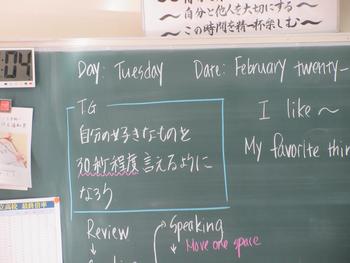 ～自分と他人を大切にする～
～この時間を精一杯楽しむ～
:04
Day: Tuesday Date: February twenty-
TG
自分の好きなものを
30秒程度言えるように
なろう
I like ～
My favorite thin
Review
Speaking
Move one space